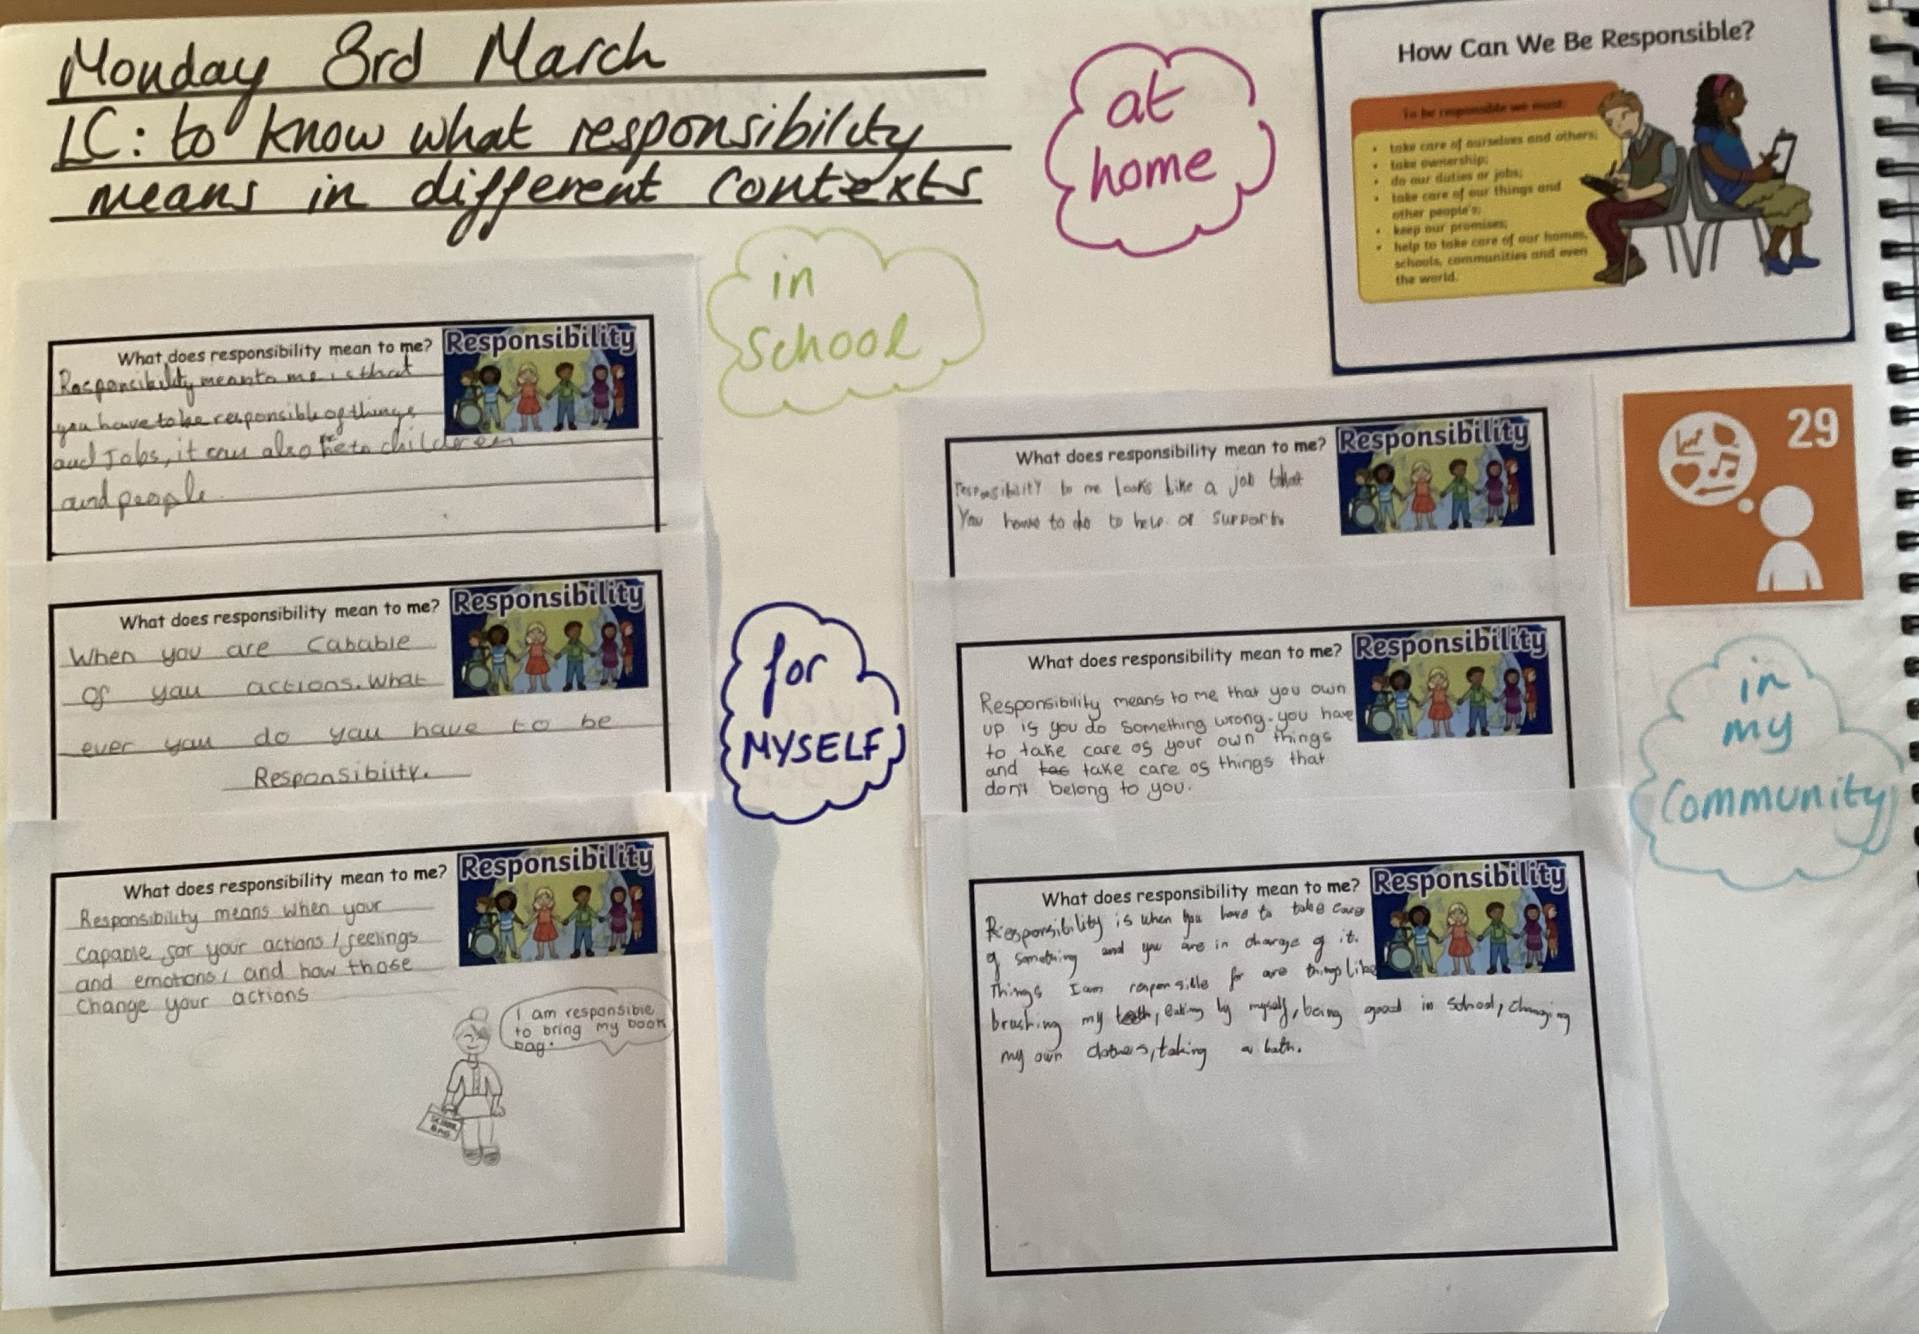 Monday 3rd March
LC: to know what responsibility
means in different contexts
at
home
How Can We Be Responsible?
To be responsible we must:
• take care of ourselves and others;
• take ownership;
• do our duties or jobs;
• take care of our things and
other people's;
• keep our promises;
• help to take care of our homes,
schools, communities and even
the world.
in
School
What does responsibility mean to me?
Responsibility
Responsibility means to me is that
you have to be responsible of things
and Jobs, it can also be to children
and people.
What does responsibility mean to me?
Responsibility
When you are Cabable
of you actions. What
ever you do you have to be
Responsibiity.
What does responsibility mean to me?
Responsibility
Responsibility means when your
capable for your actions / feelings
and emotions / and how those
Change your actions
I am responsible
to bring my book
bag.
SCHOOL
BAG
for
MYSELF
What does responsibility mean to me?
Responsibility
responsibility to me looks like a job that
You have to do to help or support
29
What does responsibility mean to me?
Responsibility
Responsibility means to me that you own
up if you do something wrong. you have
to take care of your own things
and take care of things that
don't belong to you.
in
my
Community
What does responsibility mean to me?
Responsibility
Responsibility is when you have to take care
of something and you are in charge of it.
Things I am responsible for are things like
brushing my teeth, eating by myself, being good in school, changing
my own clothes, taking a bath.